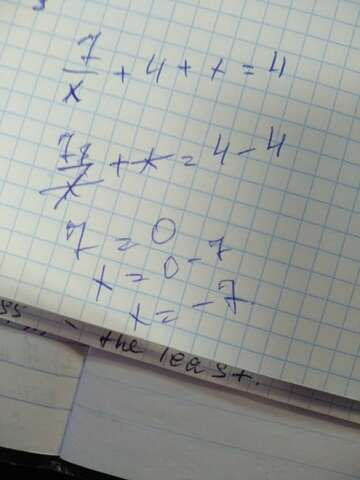 7/x + 4 + x = 4
7x/x + x = 4 - 4
7 = 0
x = 0 - 7
x = -7
the least.